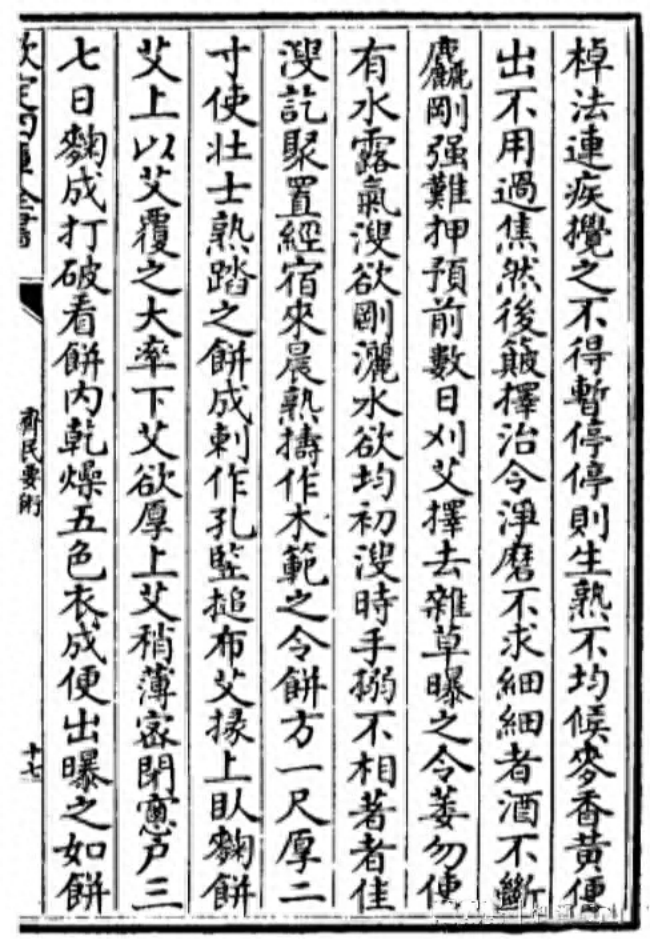 棹法連疾攪之不得暫停停則生熟不均候麥香黃便
出不用過焦然後簸擇治令淨磨不求細細者酒不斷
麤剛强難押預前數日刈艾擇去雜草曝之令萎勿使
有水露氣溲欲剛灑水欲均初溲時手搦不相著者佳
溲訖聚置經宿來晨熟擣作木範之令餅方一尺厚二
寸使壯士熟踏之餅成刺作孔竪搥布艾掾上臥麴餅
艾上以艾覆之大率下艾欲厚上艾稍薄密閉窻户三
七日麴成打破看餅内乾燥五色衣成便出曝之如餅
欽定四庫全書
齊民要術
十七